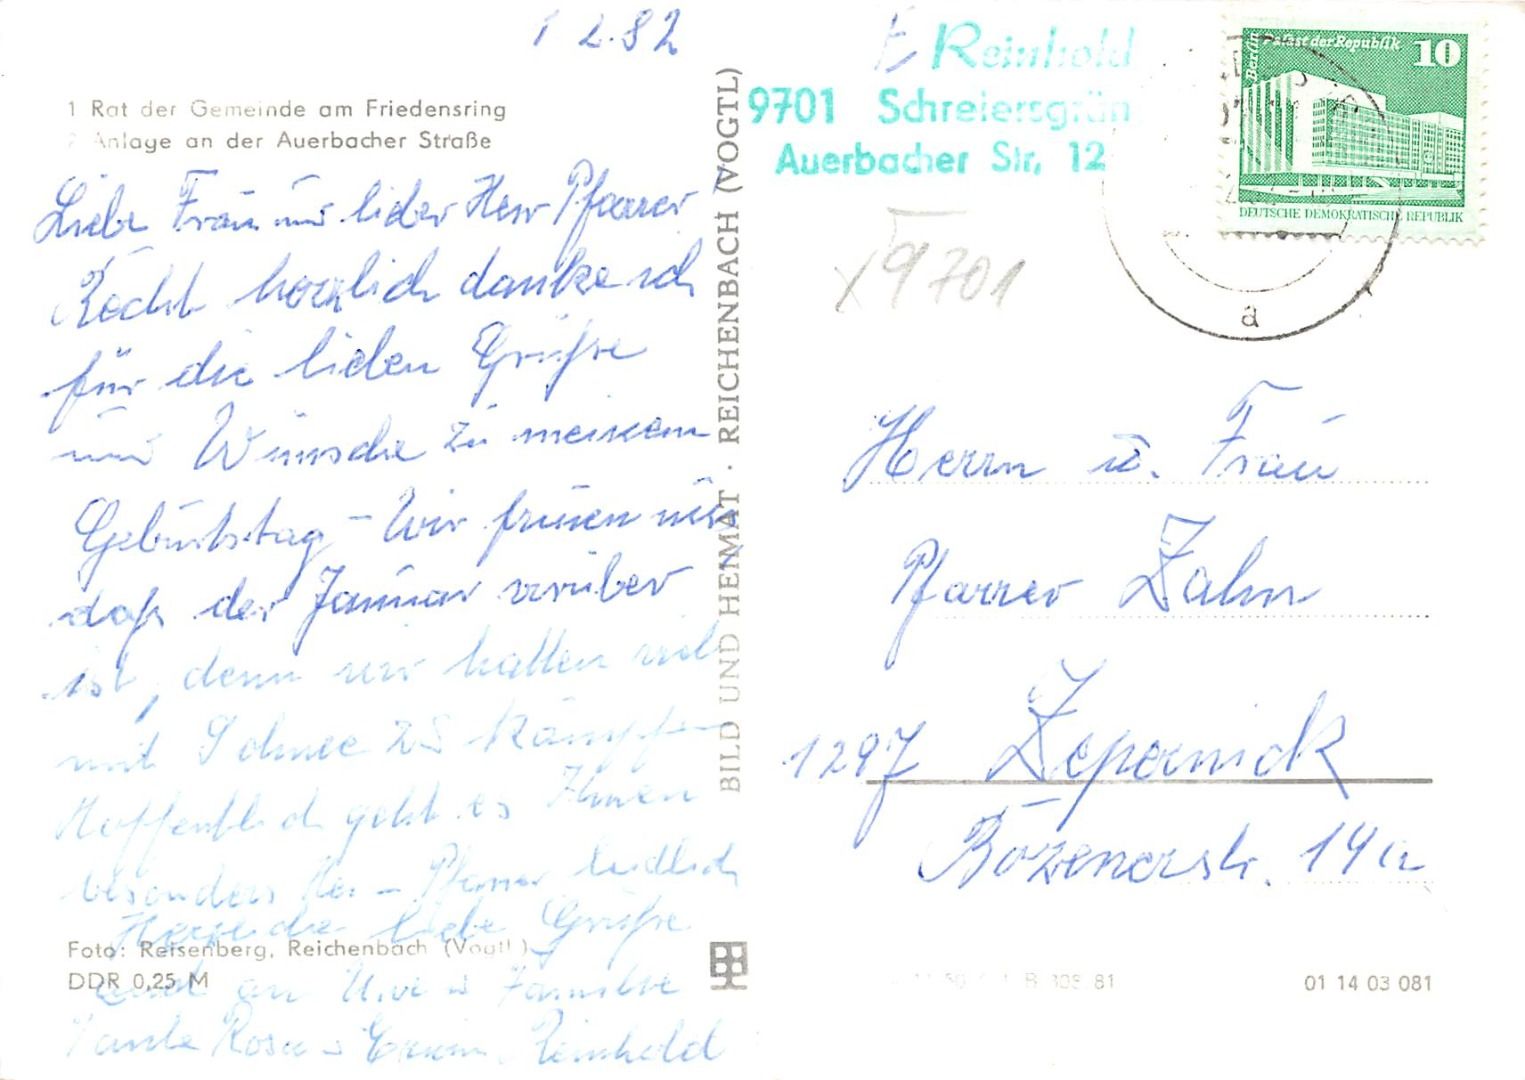 1 2.82
1 Rat der Gemeinde am Friedensring
2 Anlage an der Auerbacher Straße
Liebe Frau und lieber Herr Pfarrer
Recht herzlich danke ich
für die lieben Grüße
und Wünsche zu meinem
Geburtstag - Wir freuen uns
daß der Januar vorüber
ist, denn wir hatten viel
mit Schnee zu kämpfen
Hoffentlich geht es Ihnen
besonders Herr Pfarrer
Herzliche liebe Grüße
auch an Uwe u Familie
Tante Rosa u Erwin Reinhold
Foto: Reisenberg, Reichenbach (Vogtl.)
DDR 0,25 M
BILD UND HEIMAT · REICHENBACH (VOGTL)
E Reinhold
9701 Schreiersgrün
Auerbacher Str. 12
9701
Berlin Palast der Republik 10
DEUTSCHE DEMOKRATISCHE REPUBLIK
a
Herrn u. Frau
Pfarrer Zahn
1297 Zepernick
Bozenerstr. 14a
81
01 14 03 081